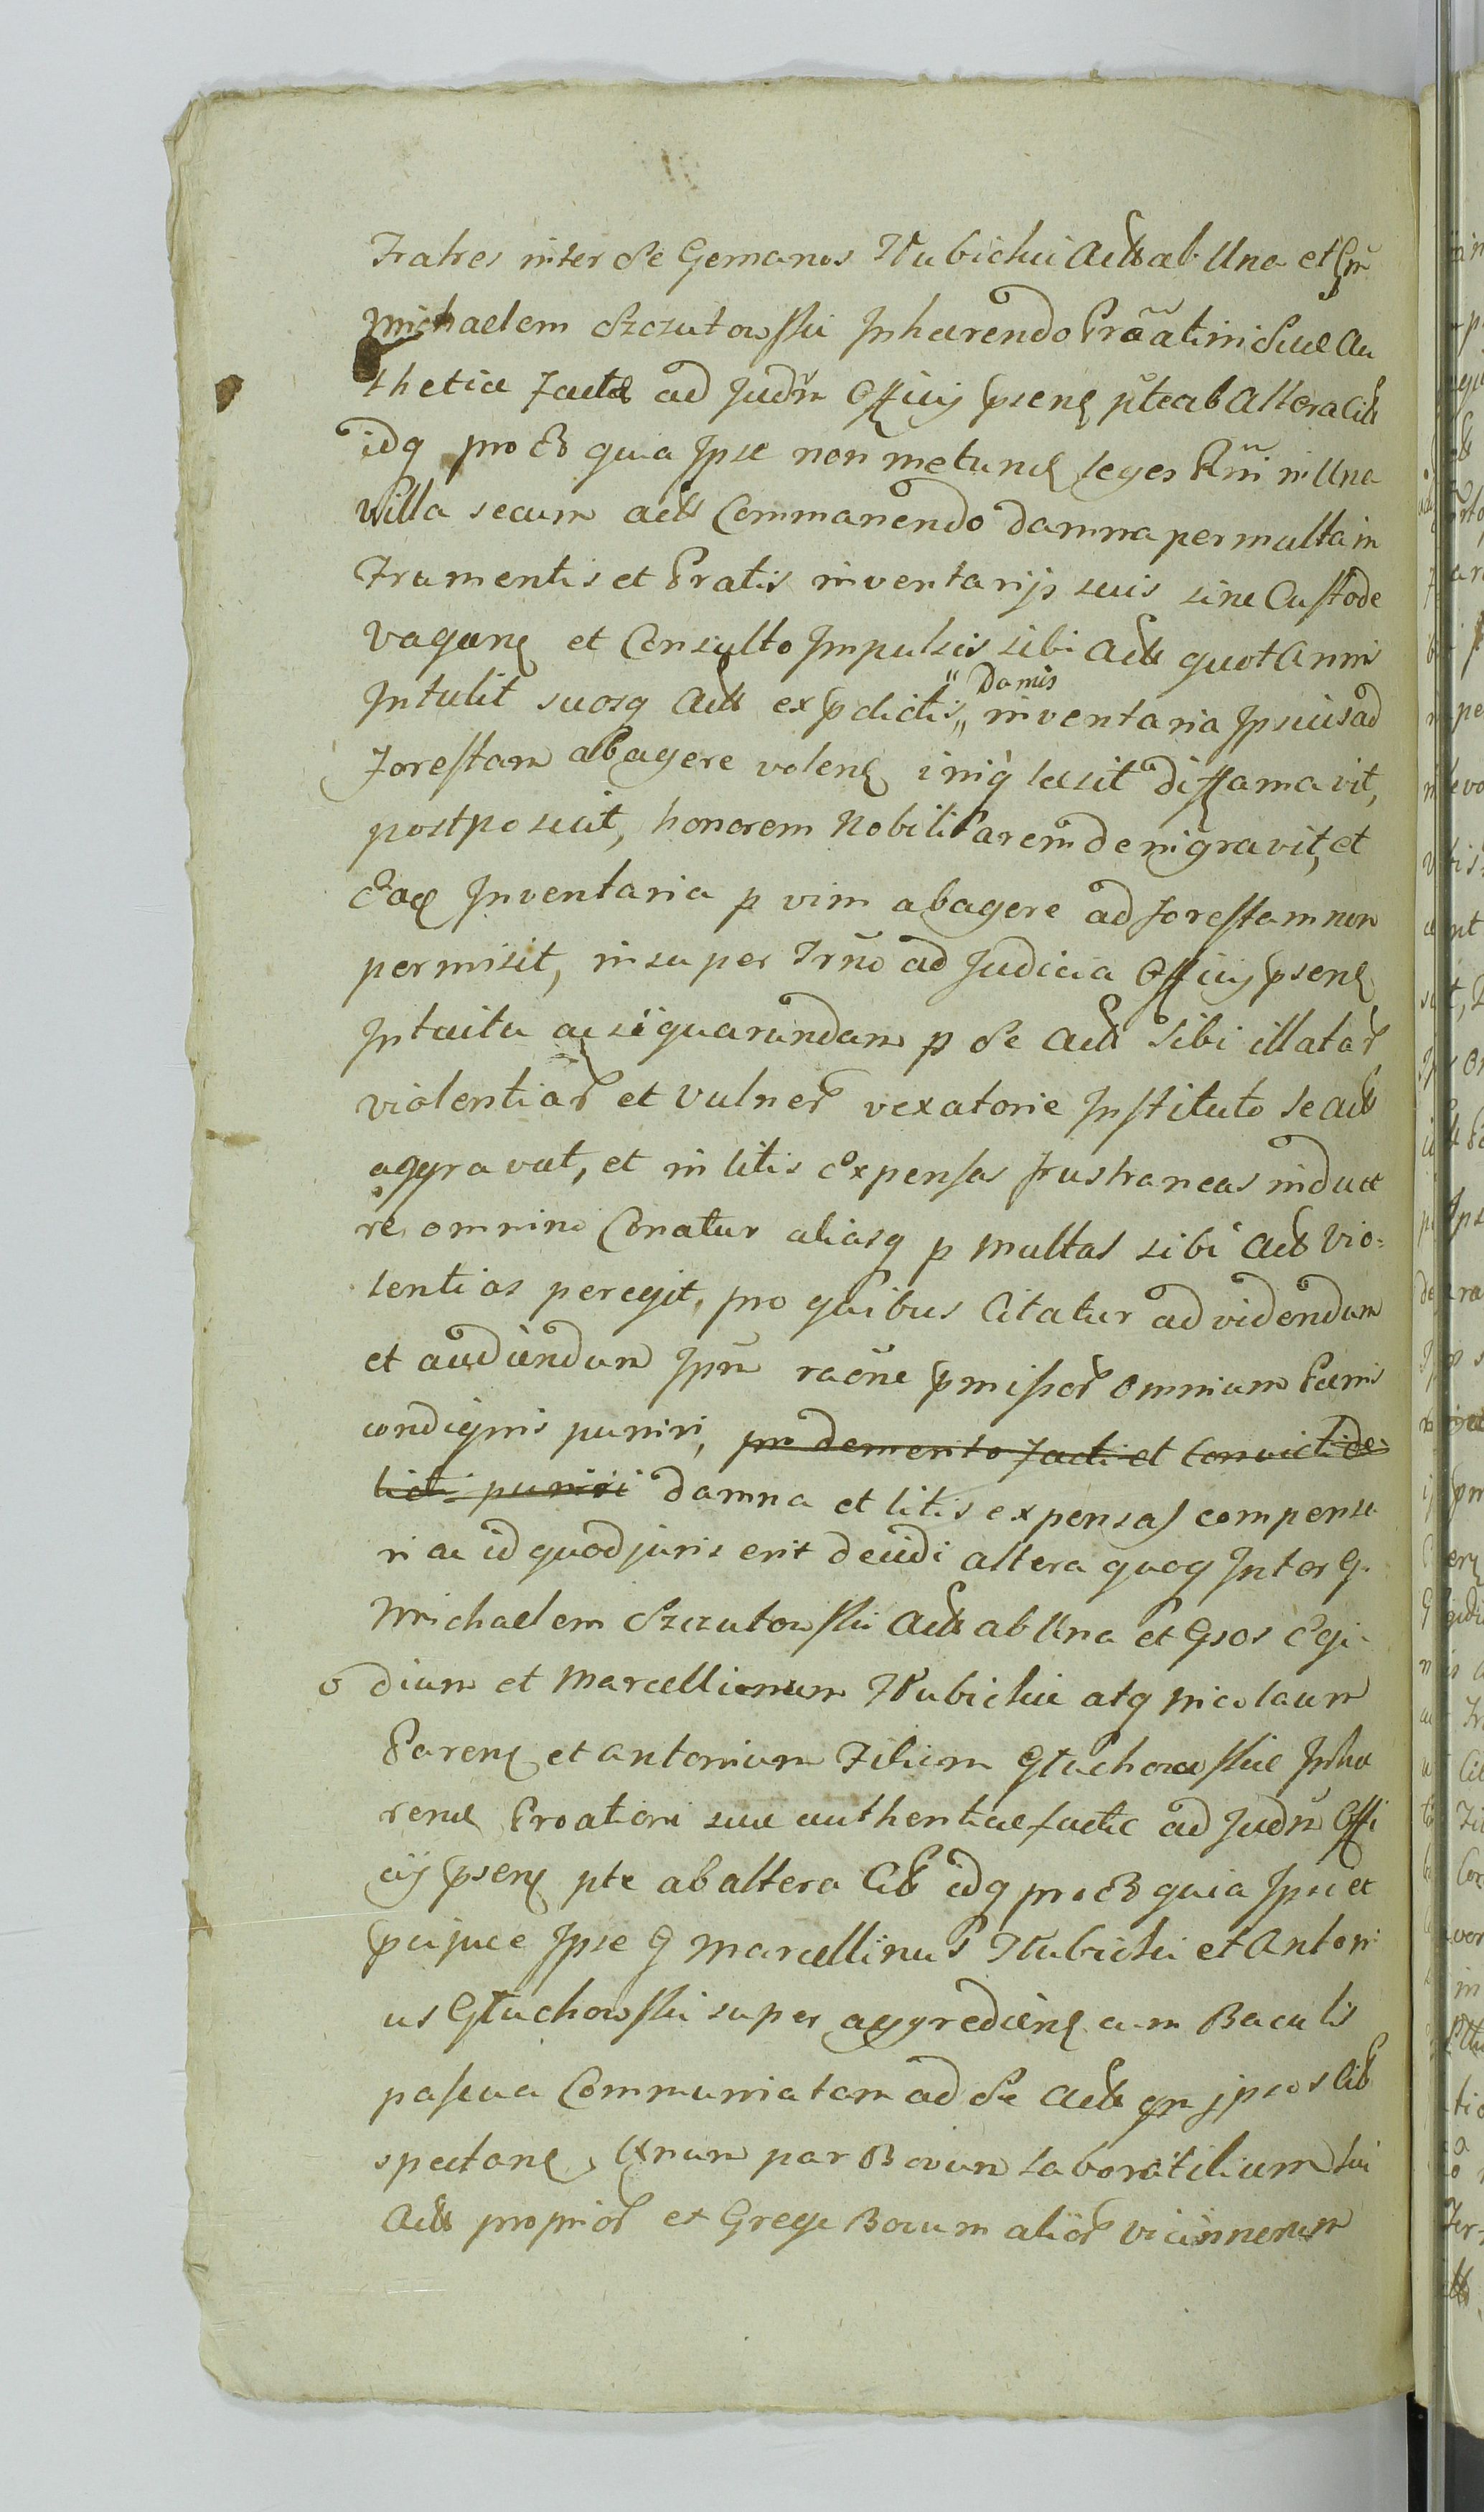 Fratres inter se Germanos Wubichii Actt ab Una et Gm
Michaelem Szczutowski Inhaerendo Prõatini suae Au
thetice factae ad Judm Officij psene pte ab Altera Citt
idq pro eo quia Ipse non metuens leges Rni in Una
Villa secum actt Commanendo damna permulta in
Frumentis et Pratis inventarijs suis sine Custode
vagane et Consulto Impulsis sibi Actt quot Annis
Intulit suosq Actt ex pdictis,, Damis inventaria Ipsius ad
Forestam abagere volene iniq laesit diffamavit,
postposuit, honorem Nobilitarem denigravit, et
Eaq Inventaria p vim abagere ad forestam non
permisit, insuper Trno ad Judicia Officij psene
Intuitu acsi quarundam p se actt sibi illatar
violentiar et vulner vexatorie Instituto se actt
aggravat, et in litis Expensas frustraneas induce
re omnino Conatur aliasq p multas sibi Actt Vio:
lentias peregit, pro quibus Citatur ad videndum
et audiendum Ipm raõne pmissor omnium Paenis
condignis puniri, pro demerito facti et Convicti de
licti puniri damna et litis expensas compensa
ri ac id quod juris erit decidi altera quoq Inter G.
Michaelem Szczutowski Actt ab Una et Gsos Egi
dium et Marcellinum Wubichii atq Nicolaum
Parene et Antonium Filium Głuchowskie Inhae
rene Proationi suae authenticae factae ad Judm Offi
cij psene pte ab altera Citt idq pro eo quia Ipsi et
pcipue Ipse G Marcellinus Wubichii et Antoni
us Głuchowski super aggrediene cum Baculis
pascua Communia tam ad se Actt qm ipsos Citt
spectane, Unum par Bovum laboratilium sui
Actt proprior ex Grege Bovum alior vicinnerum